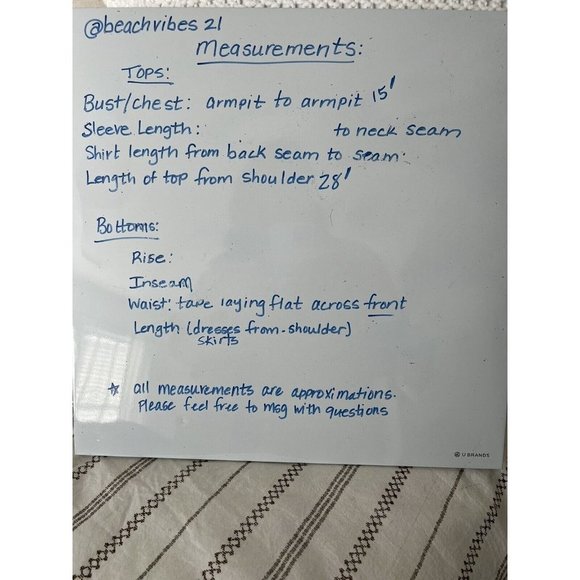 @beachvibes 21
Measurements:
Tops:
Bust/chest: armpit to armpit 15'
Sleeve Length: to neck seam
Shirt length from back seam to seam.
Length of top from shoulder 28'
Bottoms:
Rise:
Inseam
Waist: tape laying flat across front
Length (dresses from-shoulder)
skirts
☆ all measurements are approximations.
Please feel free to msg with questions
U BRANDS